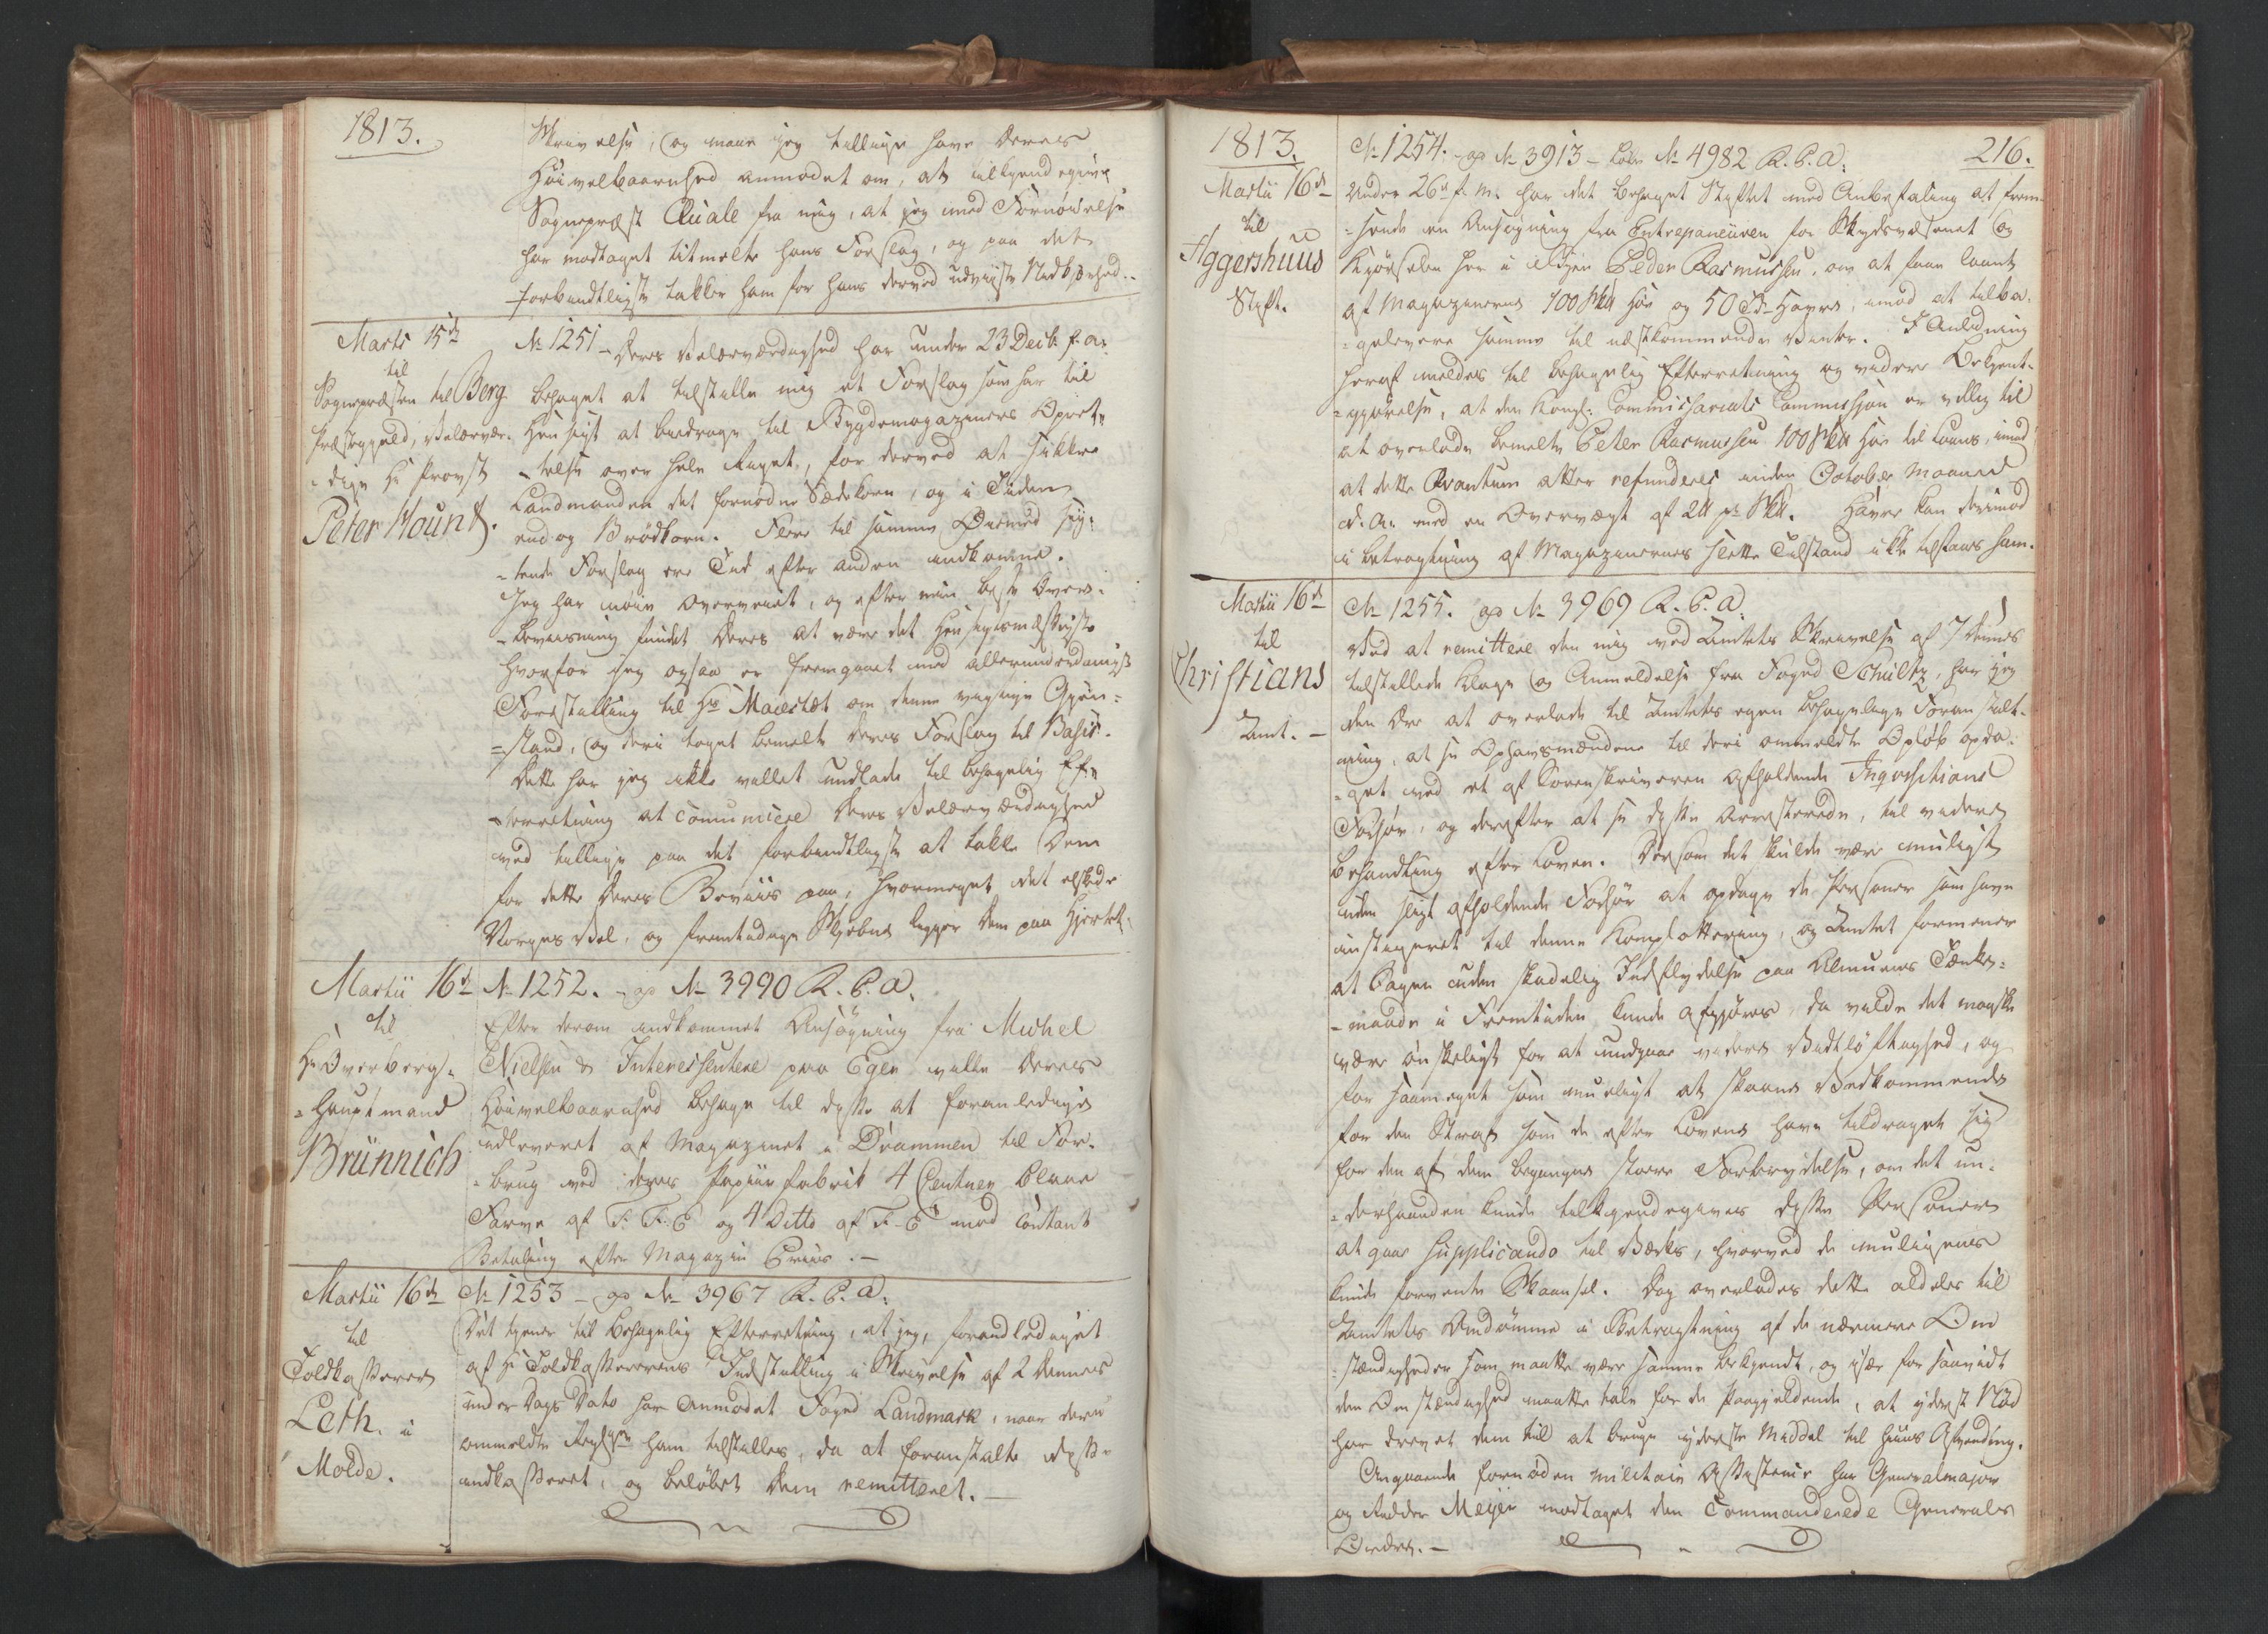 1813.
Skrivelse, og maae jeg tillige have Deres
Høivelbaarnhed anmodet om, at tilkjendegive
Sognepræst Quale fra mig, at jeg med Fornøielse
har modtaget bemelte hans Forslag, og paa det
forbindtligste takker ham for hans derved udviiste Nidkjærhed.
Marts 15de
til
Sognepræsten til Berg
Præstegjeld, Velærvær-
-dige Hr Provst
Peter Hount
No 1251 - Deres Velærværdighed har under 23 Decb. f. a.
behaget at tilstille mig et Forslag som har til
Hensigt at bidrage til Bygdemagaziners Opret-
-telse over hele Riget, for derved at sikkre
Landmanden det fornødne Sædekorn, og i Tiden
endog Brødkorn. Flere til samme Øiemed sig-
-tende Forslag ere Tid efter anden indkomne.
Jeg har nøie overveiet, og efter min beste Over-
-beviisning fundet Deres at være det Hensigtsmæssigste
hvorfor jeg ogsaa er fremgaaet med allerunderdanigst
Forestilling til Hs Majestæt om denne vigtige Gjen-
-stand, og deri taget bemelte Deres Forslag til Basis.
Dette har jeg ikke villet undlade til behagelig Ef-
-terretning at communicere Deres Velærværdighed
ved tillige paa det forbindtligste at takke Dem
for dette Deres Beviis paa, hvormeget det elskede
Norges Vel, og fremtidige Skjebne ligger Dem paa Hjertet.
Martii 16de
til
Hr Overberg-
-hauptmand
Brünnich
No 1252. - ad No 3990 R. P. A.
Efter derom indkommet Ansøgning fra Michel
Nielsen & Interessentere paa Eger ville Deres
Høivelbaarnhed behage til disse at foranledige
udleveret af Magazinet i Drammen til For-
-brug ved deres Papiirfabrik 4 Centner blaae
Farve af F. F. C og 4 Ditto af F. C mod contant
Betaling efter Magazin Priis. -
Martii 16de
til
Toldkasserer
Leth i
Molde.
No 1253 - ad No 3967 R. P. A.
Det tjener til behagelig Efterretning, at jeg, foranlediget
af Hr Toldkassererens Indstilling i Skrivelse af 2 dennes
under Dags Dato har anmodet Foged Landmark, naar den
ommeldte ham tilstilles, da at foranstalte disse
indkasseret, og Beløbet Dem remitteret. -
1813.
216.
Martii 16de
til
Aggershuus
Stift.
No 1254. ad No 3913 - Løbe No 4982 R. P. A.
Under 26de f. M. har det behaget Stiftet med Anbefaling at frem-
-sende en Ansøgning fra Entrepaneuren for Skydsvæsenet og
Kjørselen her i Byen Peder Rasmussen, om at faae laant
af Magazinerne 100 Sk℔ Høe og 50 Tdr Havre, imod at tilba-
-gelevere samme til næstkommende Vinter. I Anledning
heraf meldes til behagelig Efterretning og videre Bekjent-
-gjørelse, at den Kongl: Commissariats Commission er villig til
at overlade bemelte Peter Rasmussen 100 Sk℔ Høe til Laans, imod
at dette Qvantum atter refunderes inden October Maaned
d. A. med en Overvægt af 2℔ pr Sk℔. Havre kan derimod
i Betragtning af Magazinernes slette Tilstand ikke tilstaaes ham.
Martii 16de
til
Christians
Amt. -
No 1255. ad No 3969 R. P. A.
Ved at remittere den mig ved Amtets Skrivelse af 7 dennes
tilstillede Klage og Anmeldelse fra Foged Schultz, har jeg
den Ære at overlade til Amtets egen behagelige Foranstalt-
ning, at see Ophavsmændene til deri ommeldte Opløb opda-
-get ved et af Sorenskriveren afholdende Inqvisitions
Forhør, og derefter at see disse arresterede, til videre
Behandling efter Loven. Dersom det skulde være muligt
uden sligt afholdende Forhør at opdage de Personer som have
instigeret til denne Komplottering, og Amtet formener
at Sagen uden skadelig Indflydelse paa Almuens Tænke-
-maade i Fremtiden kunde afgjøres, da vilde det maaske
være ønskeligt for at undgaae videre Vidtløftighed, og
for saameget som mueligt at skaane Vedkommende
for den Straf som de efter Lovene have tildraget sig
for den af dem begangne store Forbrydelse, om det un-
-derhaanden kunde tilkjendegives disse Personer
at gaae supplicando til Værks, hvorved de muligens
kunde forvente Skaansel. Dog overlades dette aldeles til
Amtets Omdømme i Betragtning af de nærmere Om
-stændigheder som maatte være samme bekjendt, og især for saavidt
den Omstændighed maatte tale for de Paagjeldende, at yderst Nød
har drevet dem til at bruge yderste Middel til Afvending.
Angaaende fornøden militair Assistence har Generalmajor
og Ridder Meyer modtaget den Commanderede Generals
Ordre. -